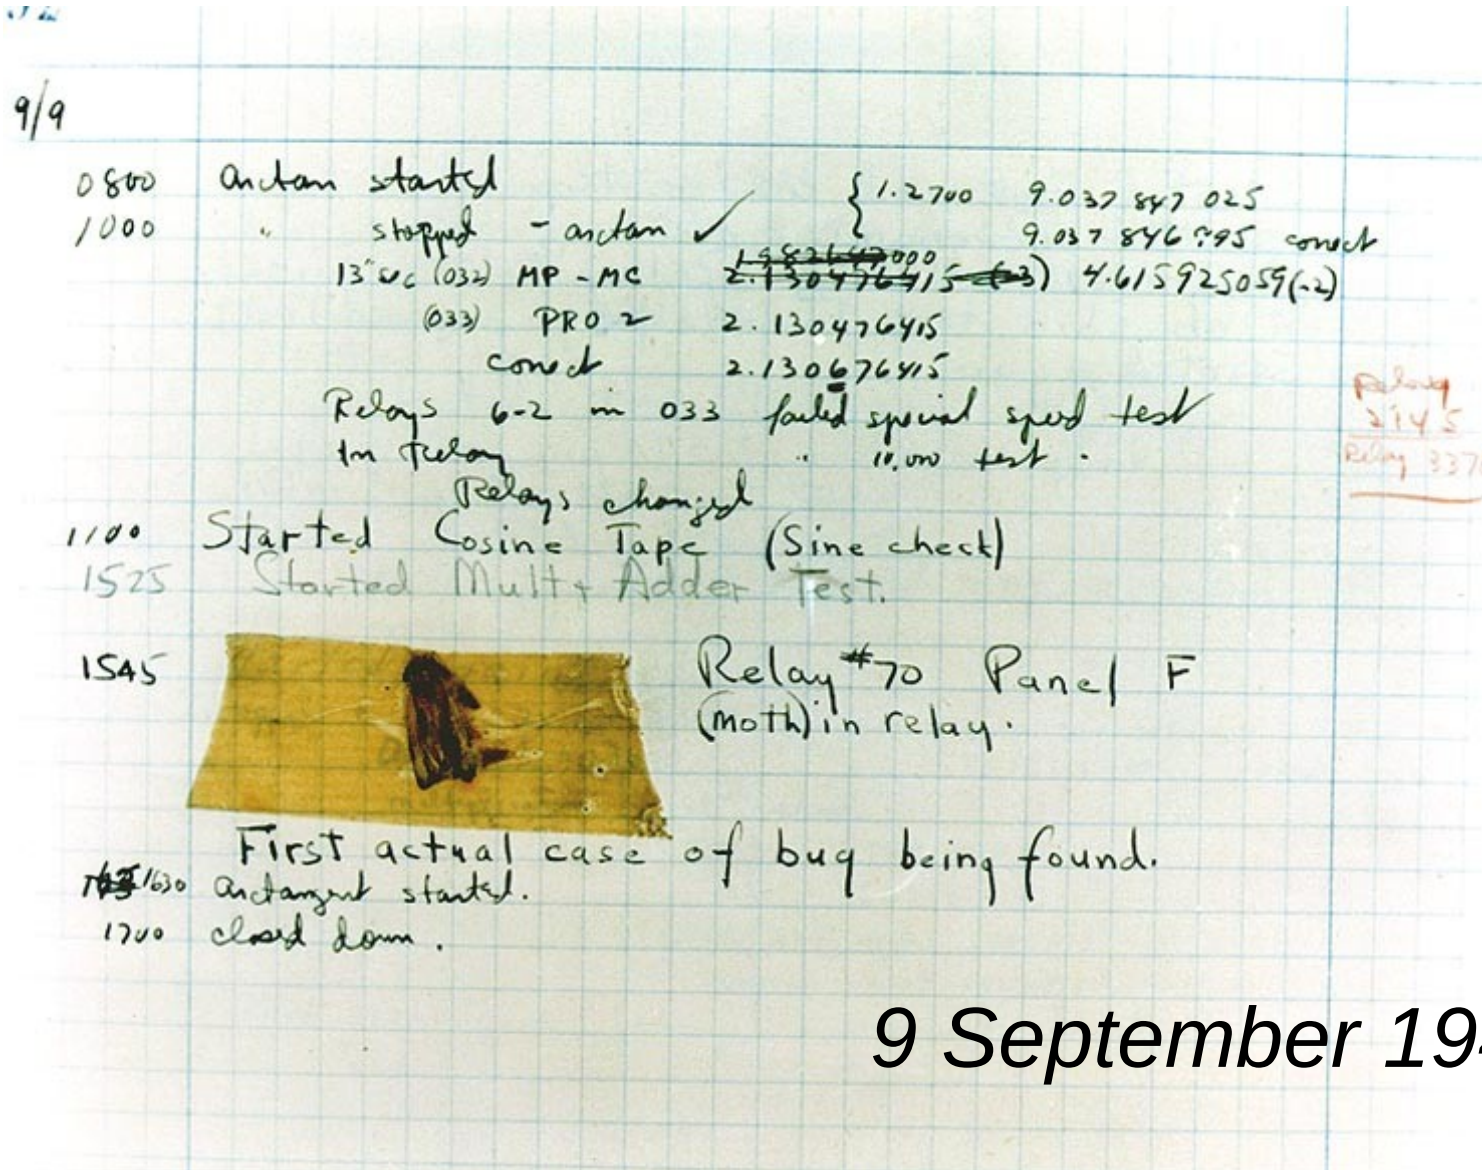 9/9
0800 arctan started { 1.2700 9.037 847 025
1000 " stopped - arctan ✓ 9.037 846 995 correct
13" uc (032) MP - MC 2.130476415 (-3) 4.615925059(-2)
(033) PRO 2 2.130476415
correct 2.130676415
Relays 6-2 in 033 failed special speed test
In Relay " 10,000 test .
Relays changed
Relay
2145
Relay 337
1100 Started Cosine Tape (Sine check)
1525 Started Mult + Adder Test.
1545 Relay #70 Panel F
(moth) in relay.
First actual case of bug being found.
1630 arctangent started.
1700 closed down.
9 September 19